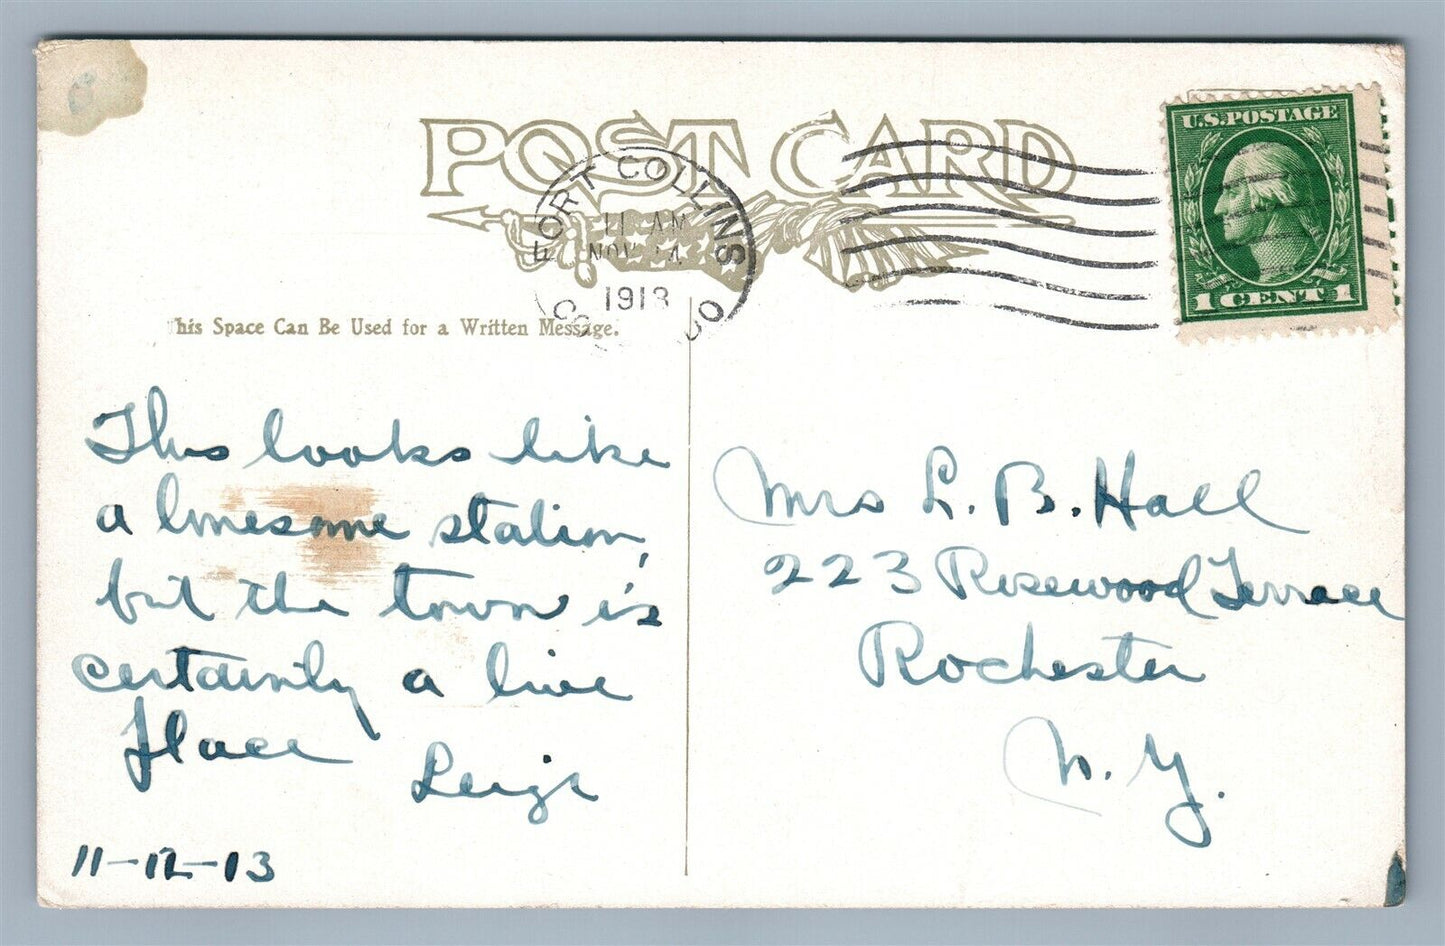 POST CARD
FORT COLLINS
11 AM
NOV 14
1913
COLO
U.S. POSTAGE
1 CENT 1
his Space Can Be Used for a Written Message.
This looks like
a lonesome station,
but the town is
certainly a live
place
Leigh
11-12-13
Mrs L. B. Hall
223 Rosewood Terrace
Rochester
N. Y.